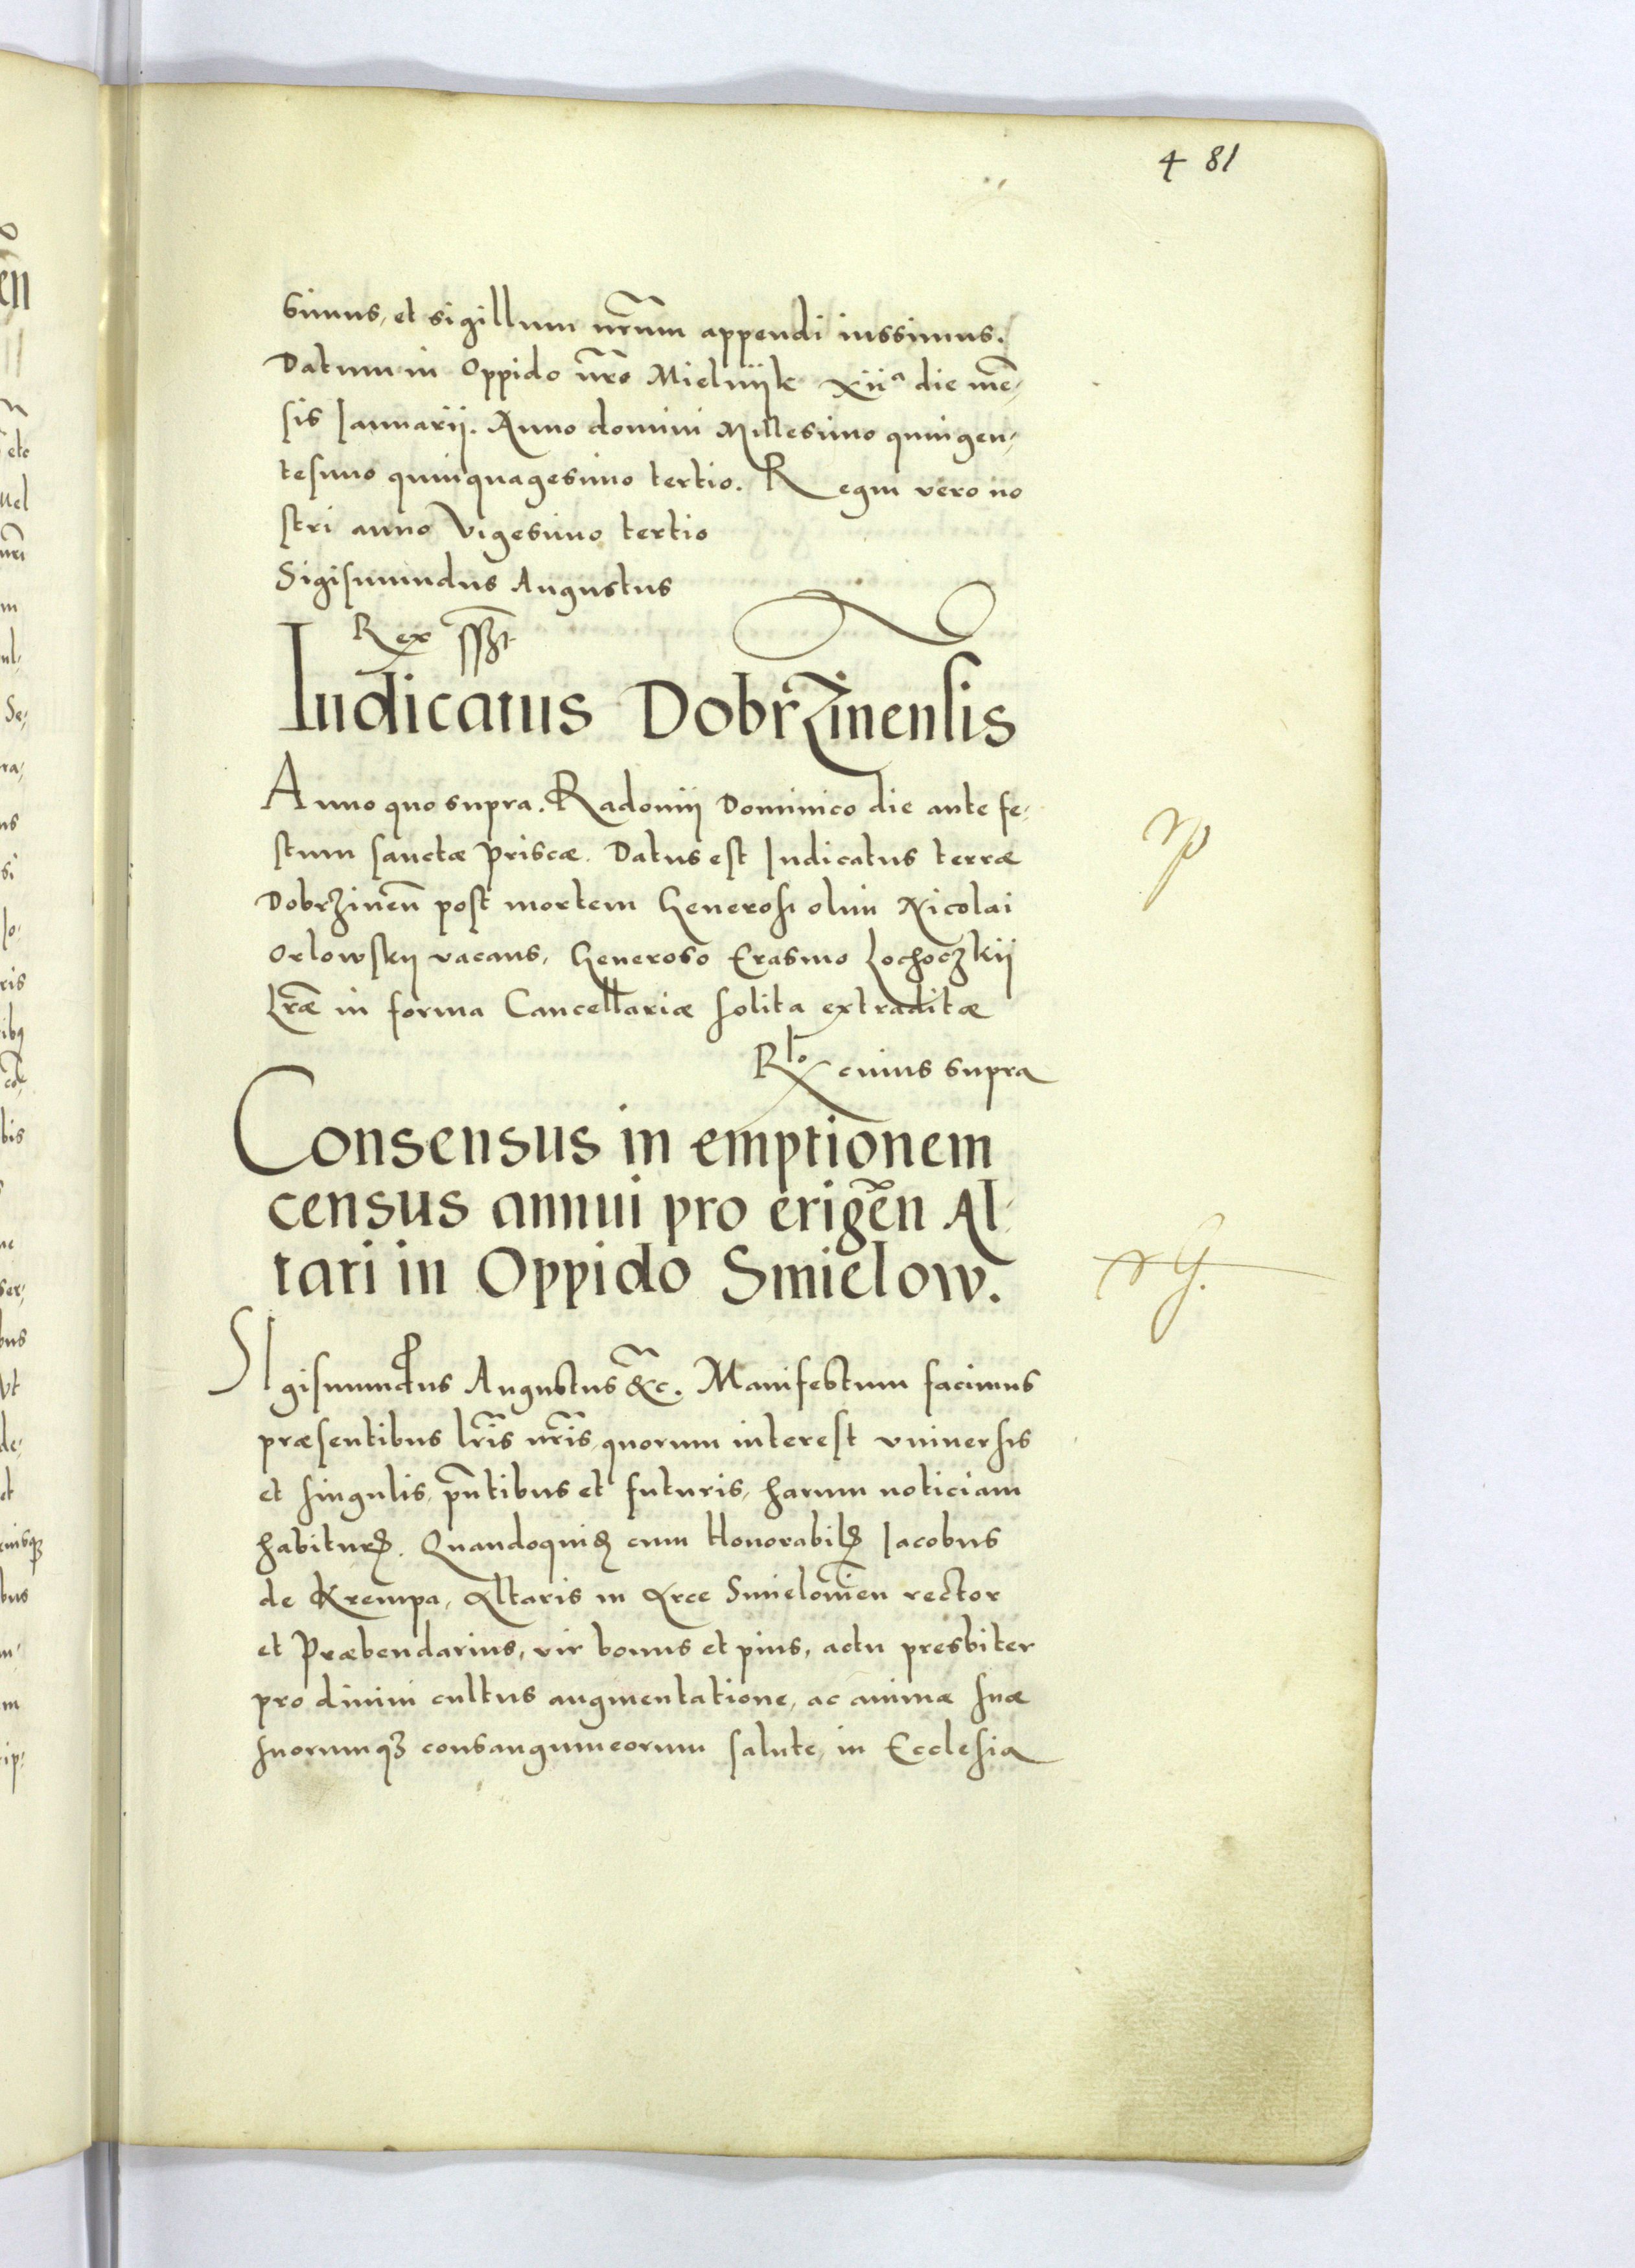 4 81
simus, et sigillum nr̃um appendi iussimus.
Datum in Oppido nr̃o Mielnijk xiiª die mẽ,
sis Ianuarij. Anno domini Millesimo quingen,
tesimo quinquagesimo tertio. Regni vero no
stri anno Vigesimo tertio
Sigismundus Augustus
Rex
Iudicatus Dobrzinensis
Anno quo supra. Radomij Dominico die ante fe,
stum sanctæ Priscæ. Datus est Iudicatus terræ
Dobrzineñ post mortem Generosi olim Nicolai
Orlowskij vacans, Generoso Erasmo Lochoczkij
Lr̃æ in forma Cancellariæ solita extraditæ
R̃lo cuius supra
Consensus in emptionem
census annui pro erigẽn Al,
tari in Oppido Smielow.
SIgismundus Augustus &c. Manifestum facimus
præsentibus lr̃is nr̃is, quorum interest vniuersis
et singulis, pñtibus et futuris, harum noticiam
habiturꝭ. Quandoquiꝫ cum Honorabilꝭ Iacobus
de Krempa, Altaris in Arce Smielovieñ rector
et Præbendarius, vir bonus et pius, actu presbiter
pro diuini cultus augmentatione, ac animæ suæ
suorumqꝫ consanguineorum salute, in Ecclesia